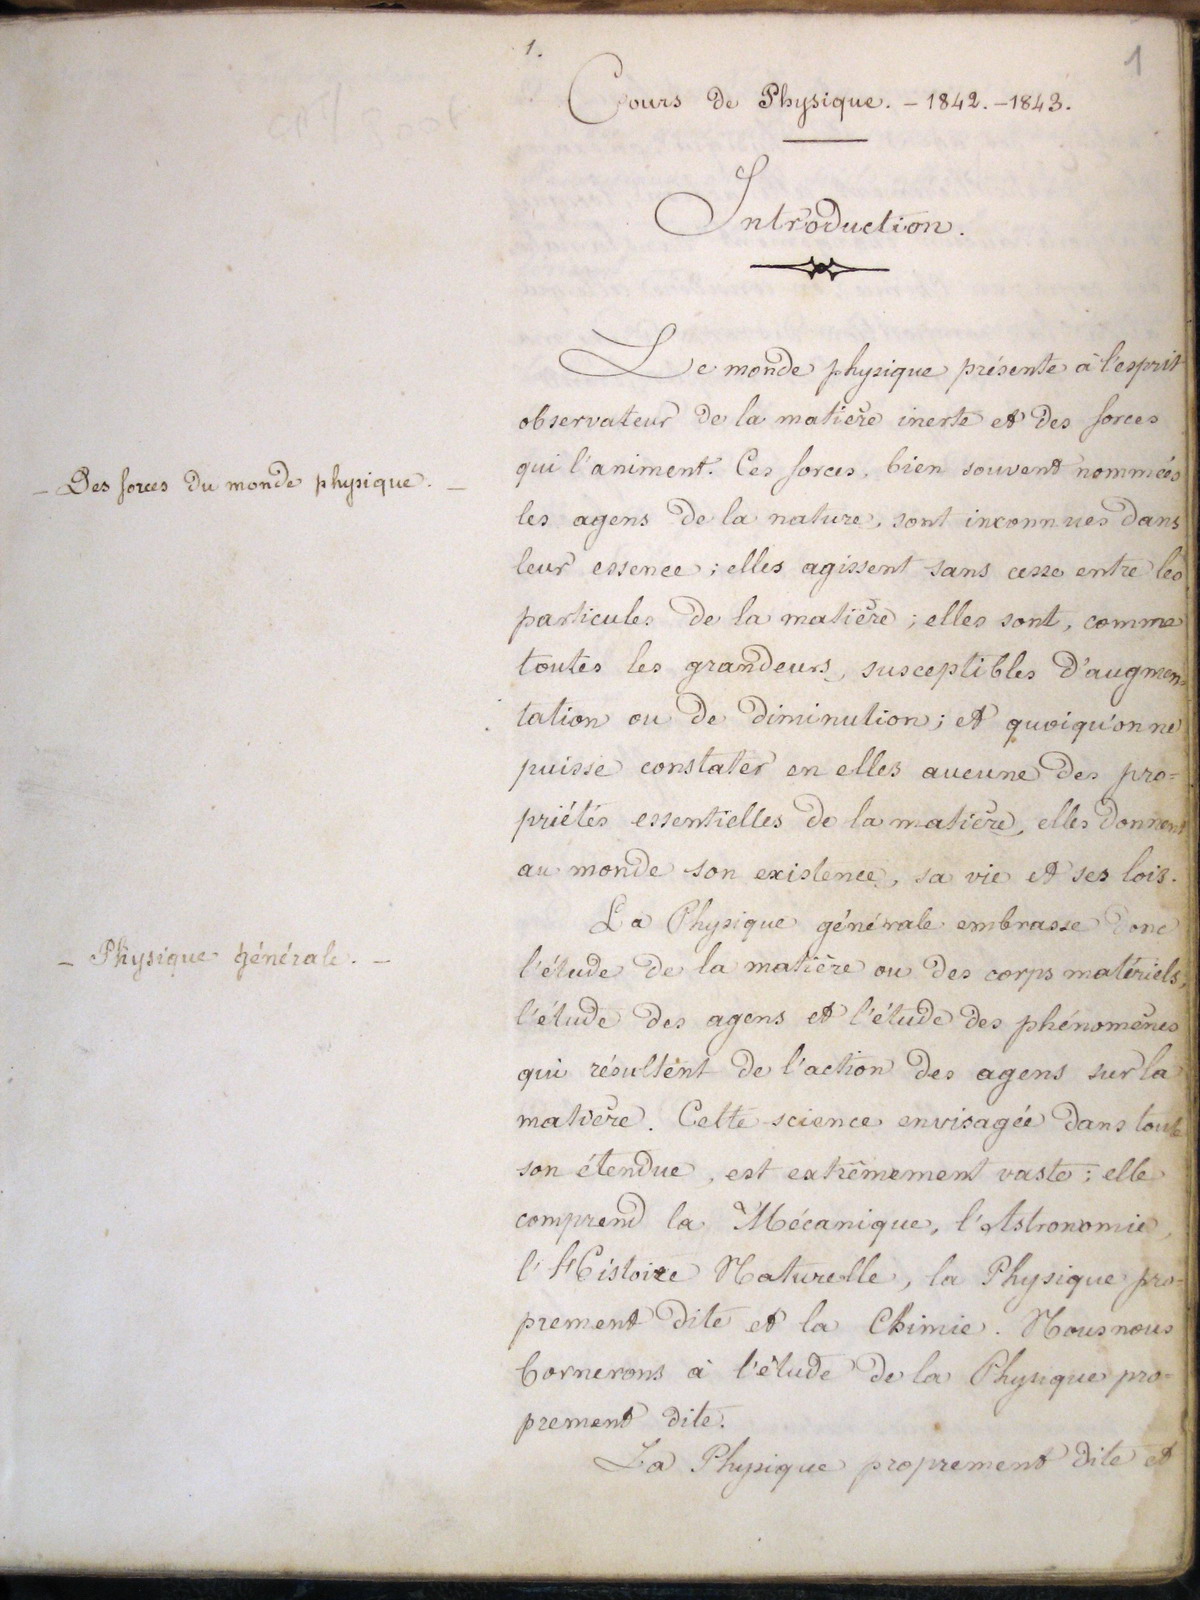 1.
1
Cours de Physique. – 1842. – 1843.
Introduction.
Le monde physique présente à l'esprit
observateur de la matière inerte et des forces
qui l'animent. Ces forces, bien souvent nommées
– Des forces du monde physique. –
les agens de la nature, sont inconnues dans
leur essence ; elles agissent sans cesse entre les
particules de la matière ; elles sont, comme
toutes les grandeurs, susceptibles d'augmen-
tation ou de diminution ; et quoiqu'on ne
puisse constater en elles aucune des pro=
priétés essentielles de la matière, elles donnent
au monde son existence, sa vie et ses lois.
La Physique générale embrasse donc
– Physique générale. –
l'étude de la matière ou des corps matériels,
l'étude des agens et l'étude des phénomènes
qui résultent de l'action des agens sur la
matière. Cette science envisagée dans toute
son étendue, est extrêmement vaste ; elle
comprend la Mécanique, l'Astronomie,
l'Histoire Naturelle, la Physique pro-
prement dite et la Chimie. Nous nous
bornerons à l'étude de la Physique pro=
prement dite.
La Physique proprement dite et